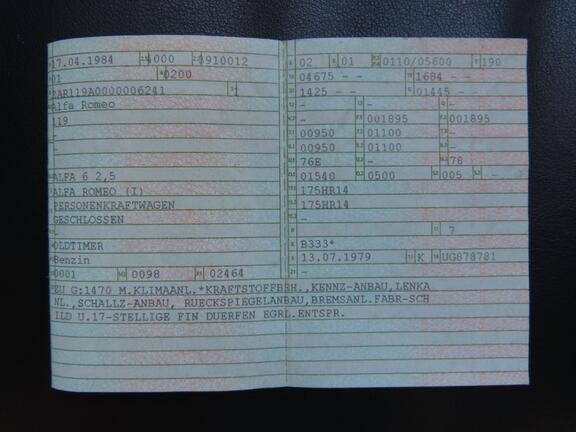 17.04.1984 4000 910012
01 0200
ZAR119A0000006241
Alfa Romeo
119
ALFA 6 2,5
ALFA ROMEO (I)
PERSONENKRAFTWAGEN
GESCHLOSSEN
-
OLDTIMER
Benzin
0001 0098 02464
02 01 0110/05600 190
04675 - - 1684 - -
1425 - - 01445 - -
- - -
- 001895 001895
00950 01100 -
00950 01100 -
76E - 78
01540 0500 005 -
175HR14
175HR14
-
- 7
B333*
13.07.1979 K UG878781
-
ZU G:1470 M.KLIMAANL.*KRAFTSTOFFBEH.,KENNZ-ANBAU,LENKA
NL.,SCHALLZ-ANBAU, RUECKSPIEGELANBAU,BREMSANL.FABR-SCH
ILD U.17-STELLIGE FIN DUERFEN EGRL.ENTSPR.